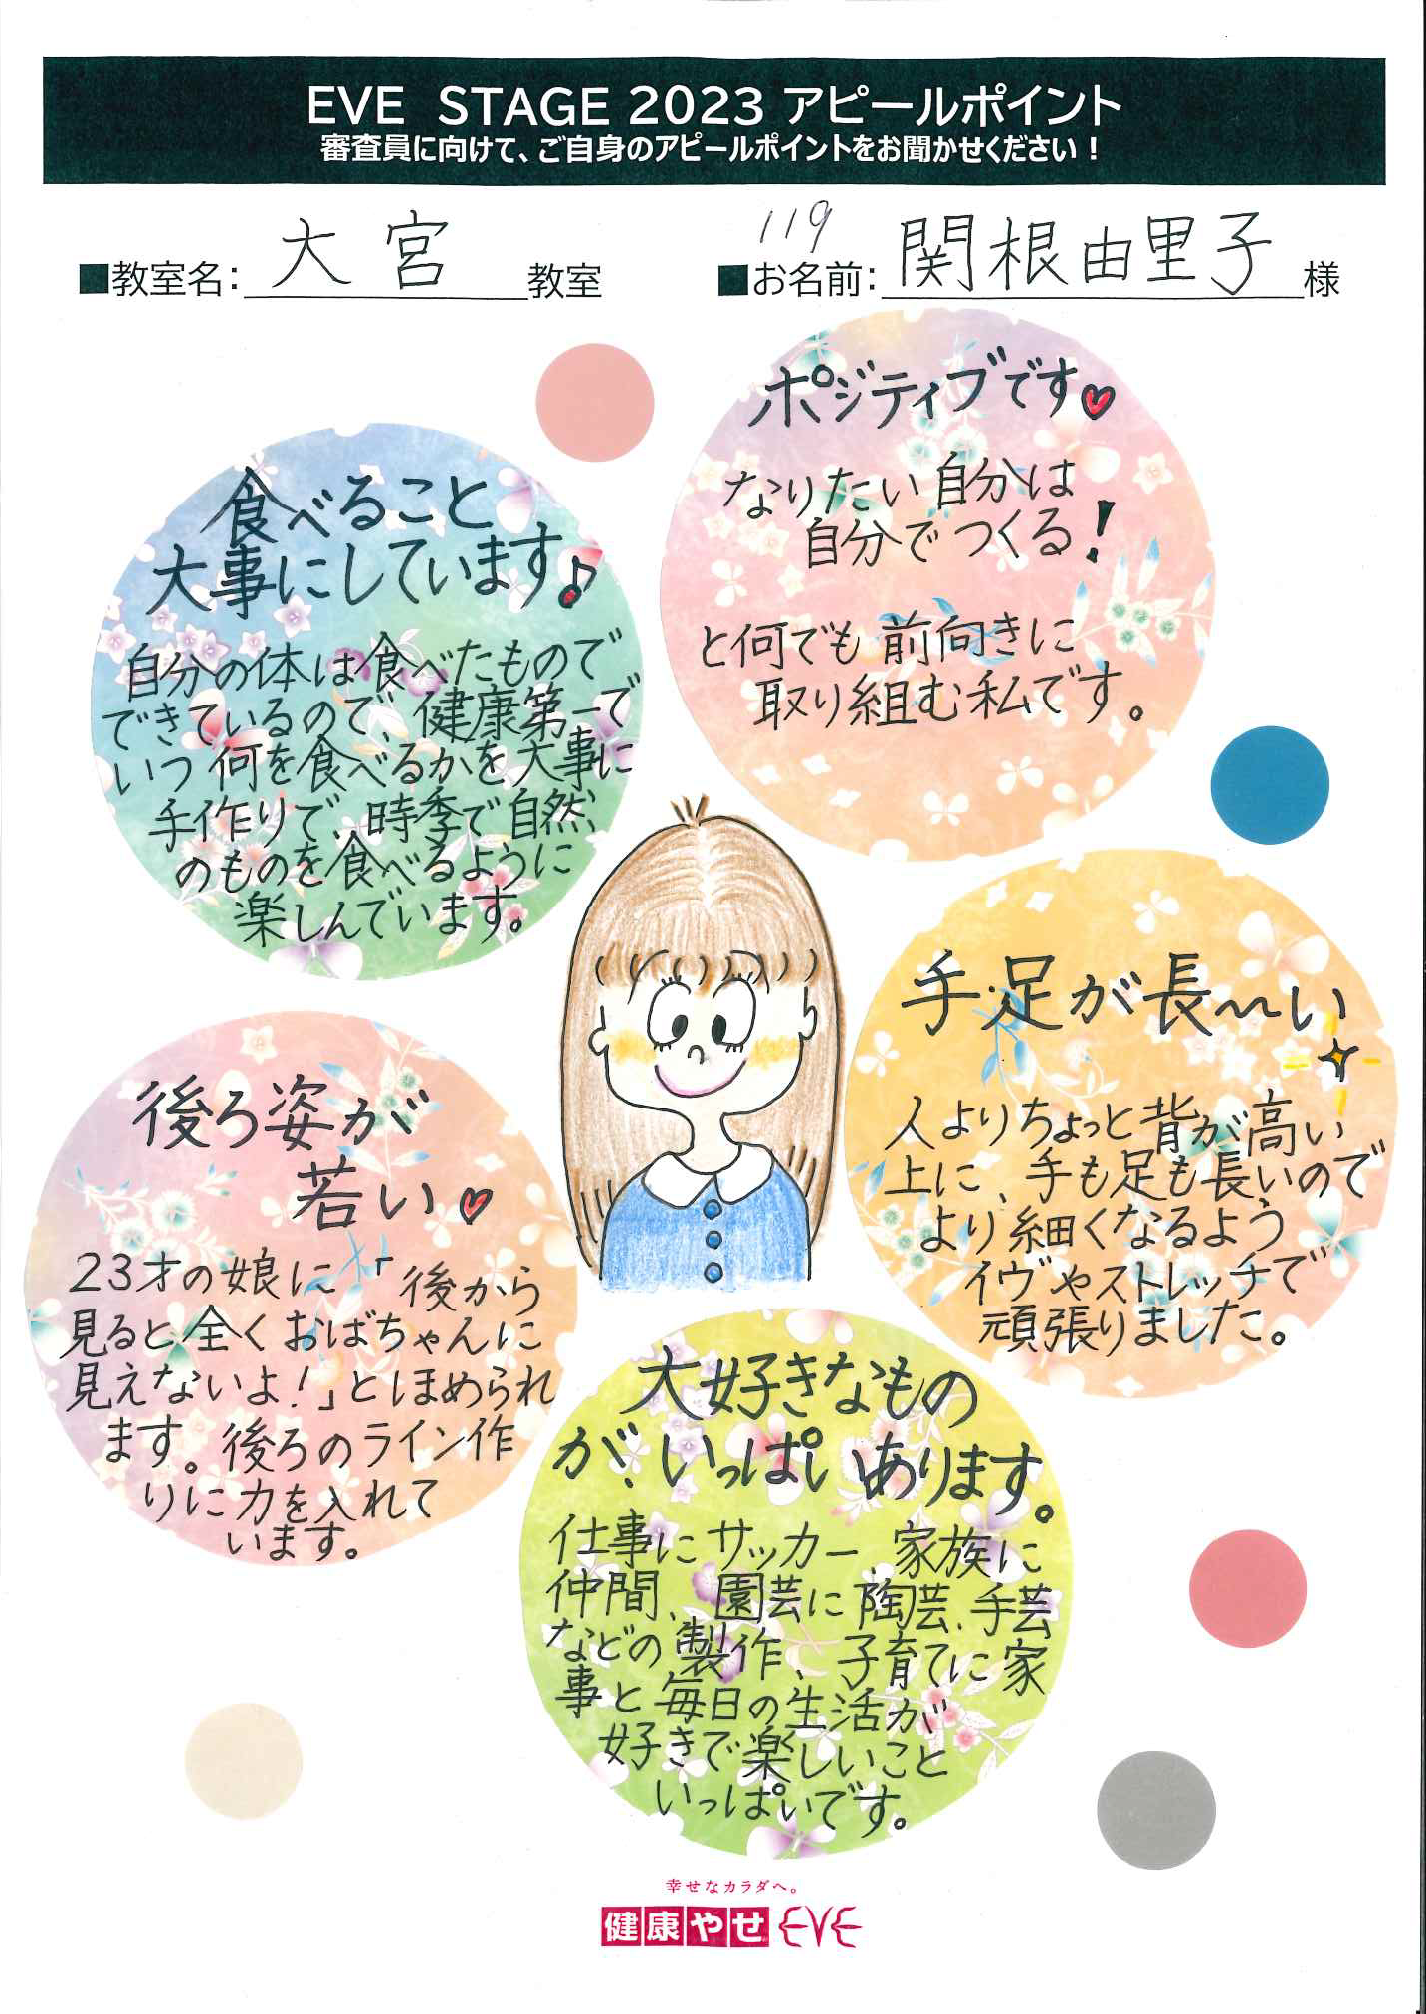 EVE STAGE 2023 アピールポイント
審査員に向けて、ご自身のアピールポイントをお聞かせください！
■教室名： 大宮 教室
119
■お名前： 関根由里子 様
ポジティブです
なりたい自分は
自分でつくる！
と何でも前向きに
取り組む私です。
食べること
大事にしています♪
自分の体は食べたもので
できているので、健康第一で
いつ何を食べるかを大事に
手作りで、時季で自然
のものを食べるように
楽しんでいます。
手足が長〜い
人よりちょっと背が高い
上に、手も足も長いので
より細くなるよう
イヴやストレッチで
頑張りました。
後ろ姿が
若い♥
23才の娘に「後から
見ると全くおばちゃんに
見えないよ！」とほめられ
ます。後ろのライン作
りに力を入れて
います。
大好きなもの
が、いっぱいあります。
仕事にサッカー、家族に
仲間、園芸に陶芸、手芸
などの製作、子育てに家
事と毎日の生活が
好きで楽しいこと
いっぱいです。
幸せなカラダへ。
健康やせ EVE